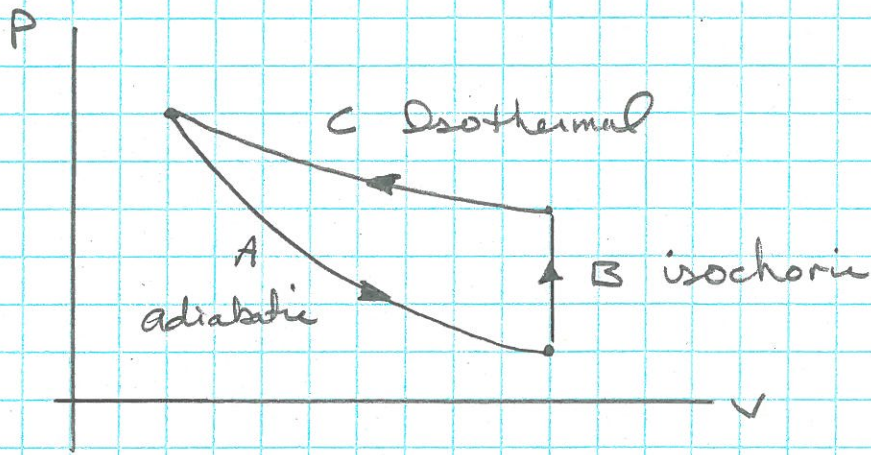 P
C Isothermal
A
adiabatic
B isochoric
V